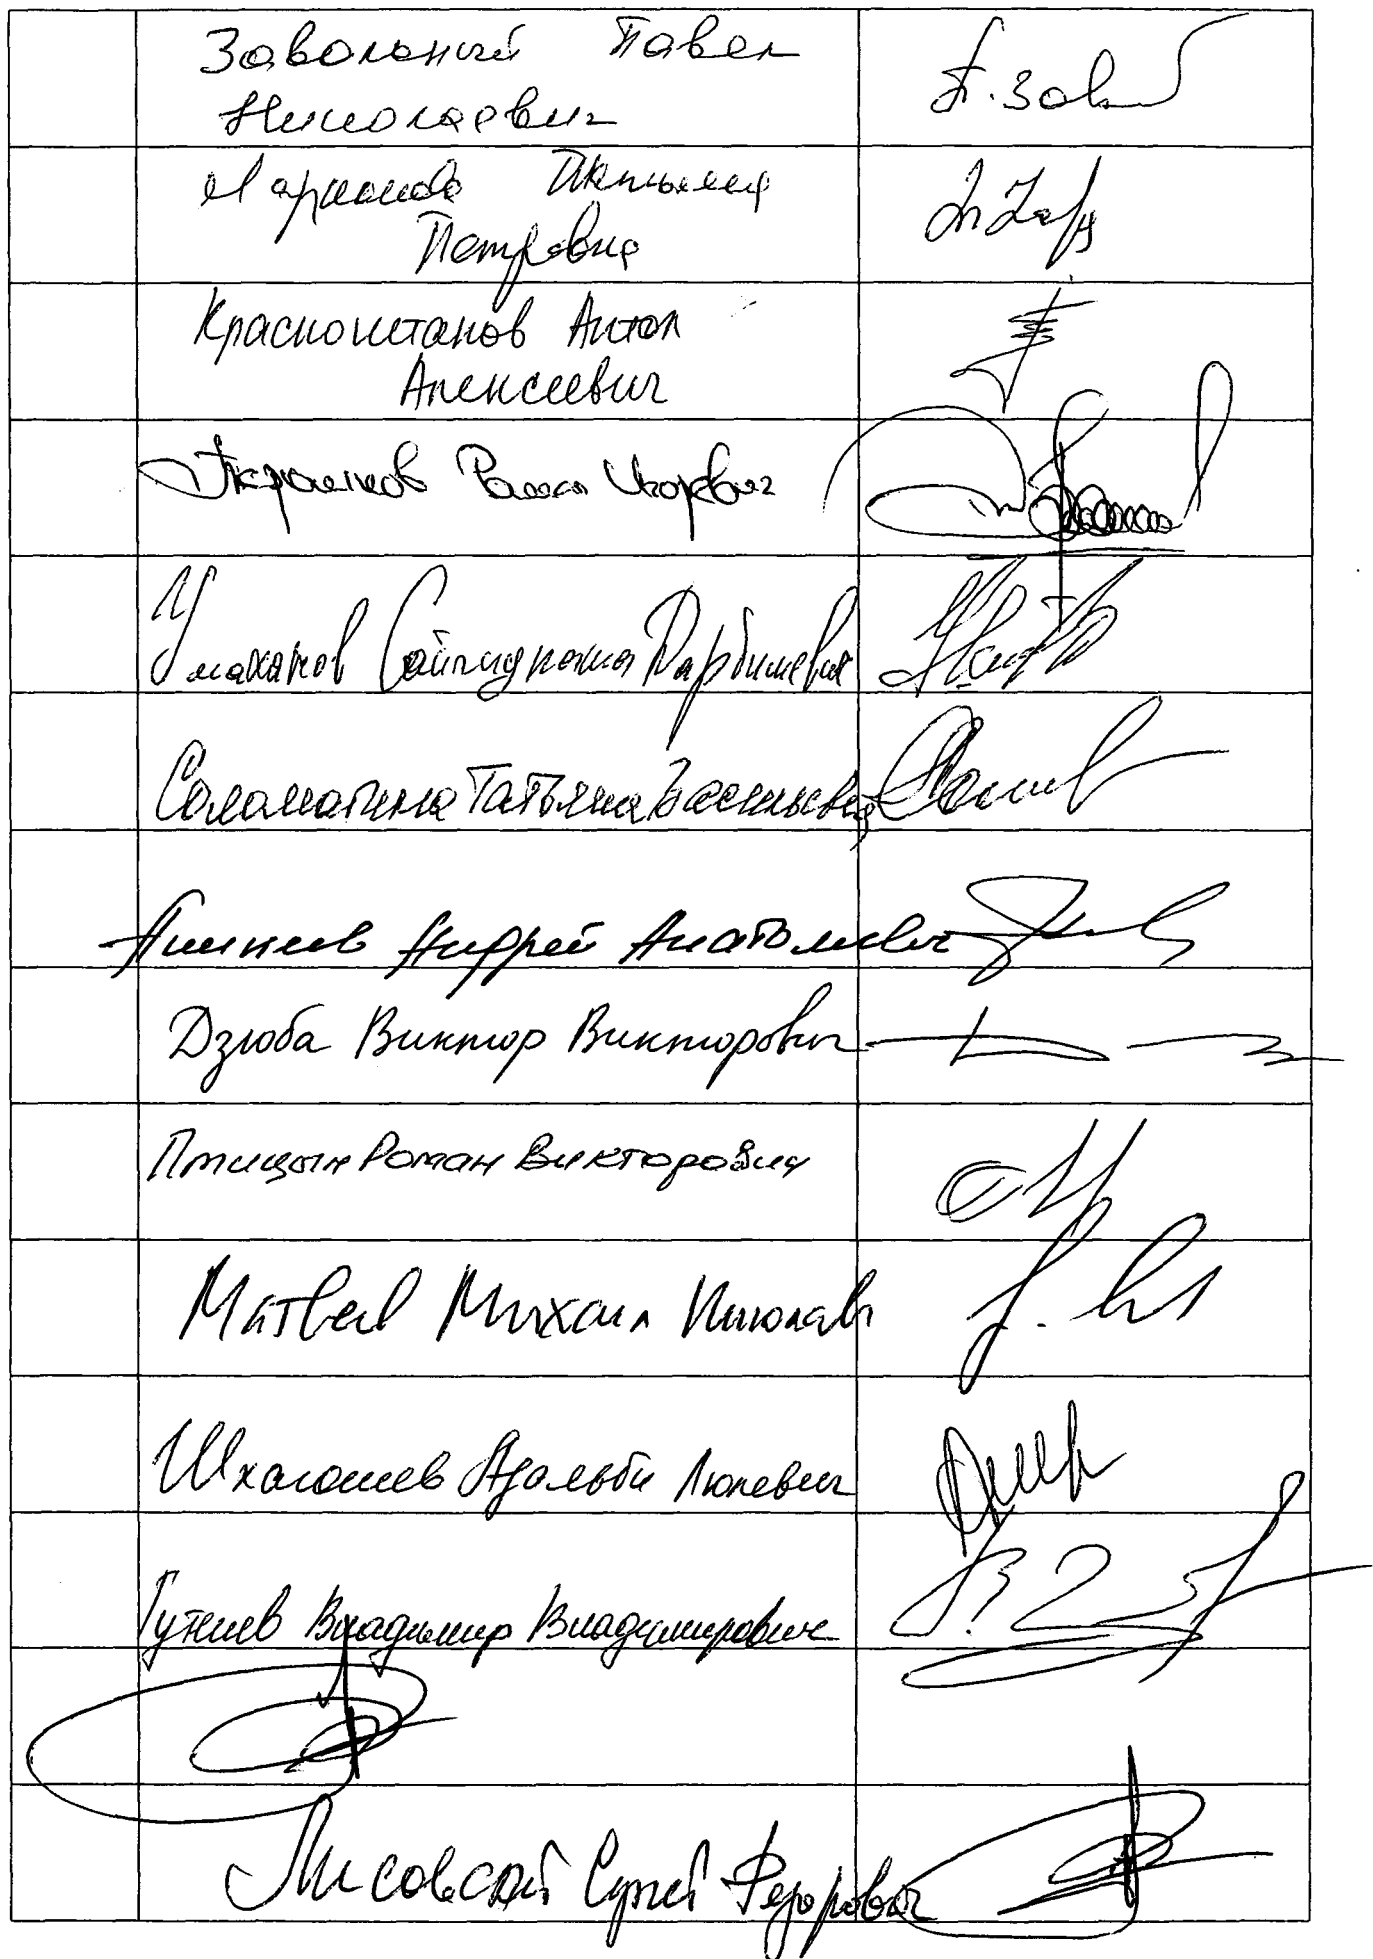 Завальный Павел
Николаевич
Ларионова Татьяна
Петровна
Красноштанов Антон
Алексеевич
Терюшков Роман Игоревич
Умаханов Сайгидпаша Дарбишевич
П. Зав
Соломатина Татьяна Васильевна
Аникеев Андрей Анатольевич
Дзюба Виктор Викторович
Птицын Роман Викторович
Матвеев Михаил Николаев
Шхагошев Адальби Люлевич
Гутенев Владимир Владимирович
Лисовский Сергей Федорович